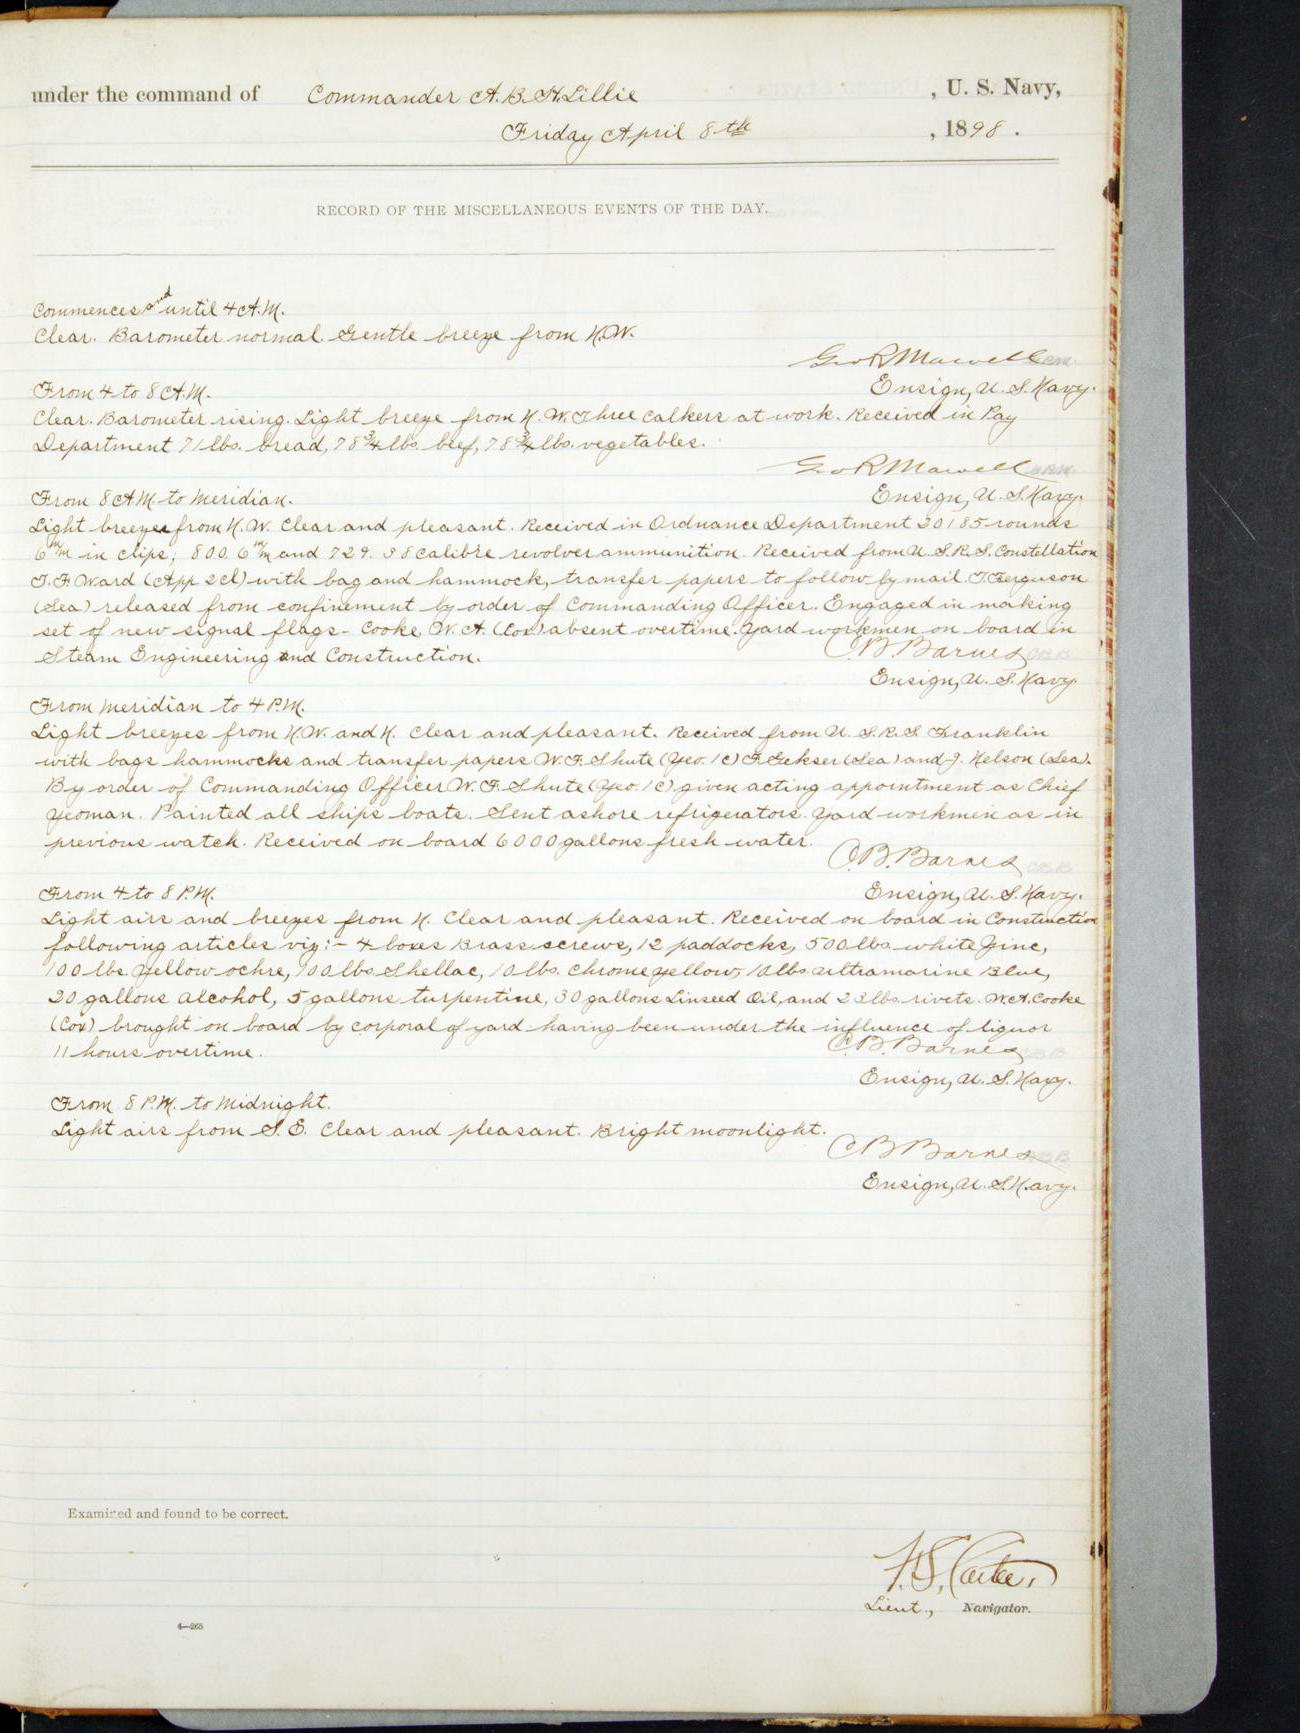 under the command of Commander A. B. H. Lillie , U. S. Navy,
Friday April 8th , 1898 .
RECORD OF THE MISCELLANEOUS EVENTS OF THE DAY.
Commences and until 4 A.M.
Clear. Barometer normal. Gentle breeze from N.W.
Geo R Marvell
Ensign, U. S. Navy.
From 4 to 8 A.M.
Clear. Barometer rising. Light breeze from N. W. Three calkers at work. Received in Pay
Department 71 lbs. bread, 78 3/4 lbs. beef, 78 3/4 lbs. vegetables.
Geo R Marvell
Ensign, U. S. Navy.
From 8 A M to Meridian.
Light breezes from N. W. Clear and pleasant. Received in Ordnance Department 20185 rounds
6 m/m in clips, 800. 6 m/m and 729. 38 calibre revolver ammunition. Received from U. S. R. S. Constellation
J. F. Ward (App 2cl) with bag and hammock, transfer papers to follow by mail. T. Ferguson
(Sea) released from confinement by order of Commanding Officer. Engaged in making
set of new signal flags - Cooke, W. A. (Cox) absent overtime. Yard workmen on board in
Steam Engineering and Construction.
C. B. Barnes
Ensign, U. S. Navy.
From meridian to 4 P.M.
Light breezes from N.W. and N. Clear and pleasant. Received from U. S. R. S. Franklin
with bags hammocks and transfer papers W. F. Shute (Yeo. 1c) F. Gekser (Sea) and J. Nelson (Sea).
By order of Commanding Officer W. F. Shute (Yeo. 1c) given acting appointment as Chief
Yeoman. Painted all ships boats. Sent ashore refrigerators. Yard workmen as in
previous watch. Received on board 6000 gallons fresh water.
C. B. Barnes
Ensign, U. S. Navy.
From 4 to 8 P.M.
Light airs and breezes from N. Clear and pleasant. Received on board in Construction
following articles viz:- 4 boxes Brass screws, 12 paddocks, 500 lbs. white Zinc,
100 lbs. Yellow ochre, 100 lbs. Shellac, 10 lbs. chrome yellow, 10 lbs. ultramarine Blue,
20 gallons alcohol, 5 gallons turpentine, 30 gallons Linseed Oil, and 23 lbs. rivets. W. A. Cooke
(Cox) brought on board by corporal of yard having been under the influence of liquor
11 hours overtime.
C. B. Barnes
Ensign, U. S. Navy.
From 8 P.M. to Midnight.
Light airs from S. E. Clear and pleasant. Bright moonlight.
C B Barnes
Ensign, U. S. Navy.
Examined and found to be correct.
F. S. Carter,
Lieut., Navigator.
4—265